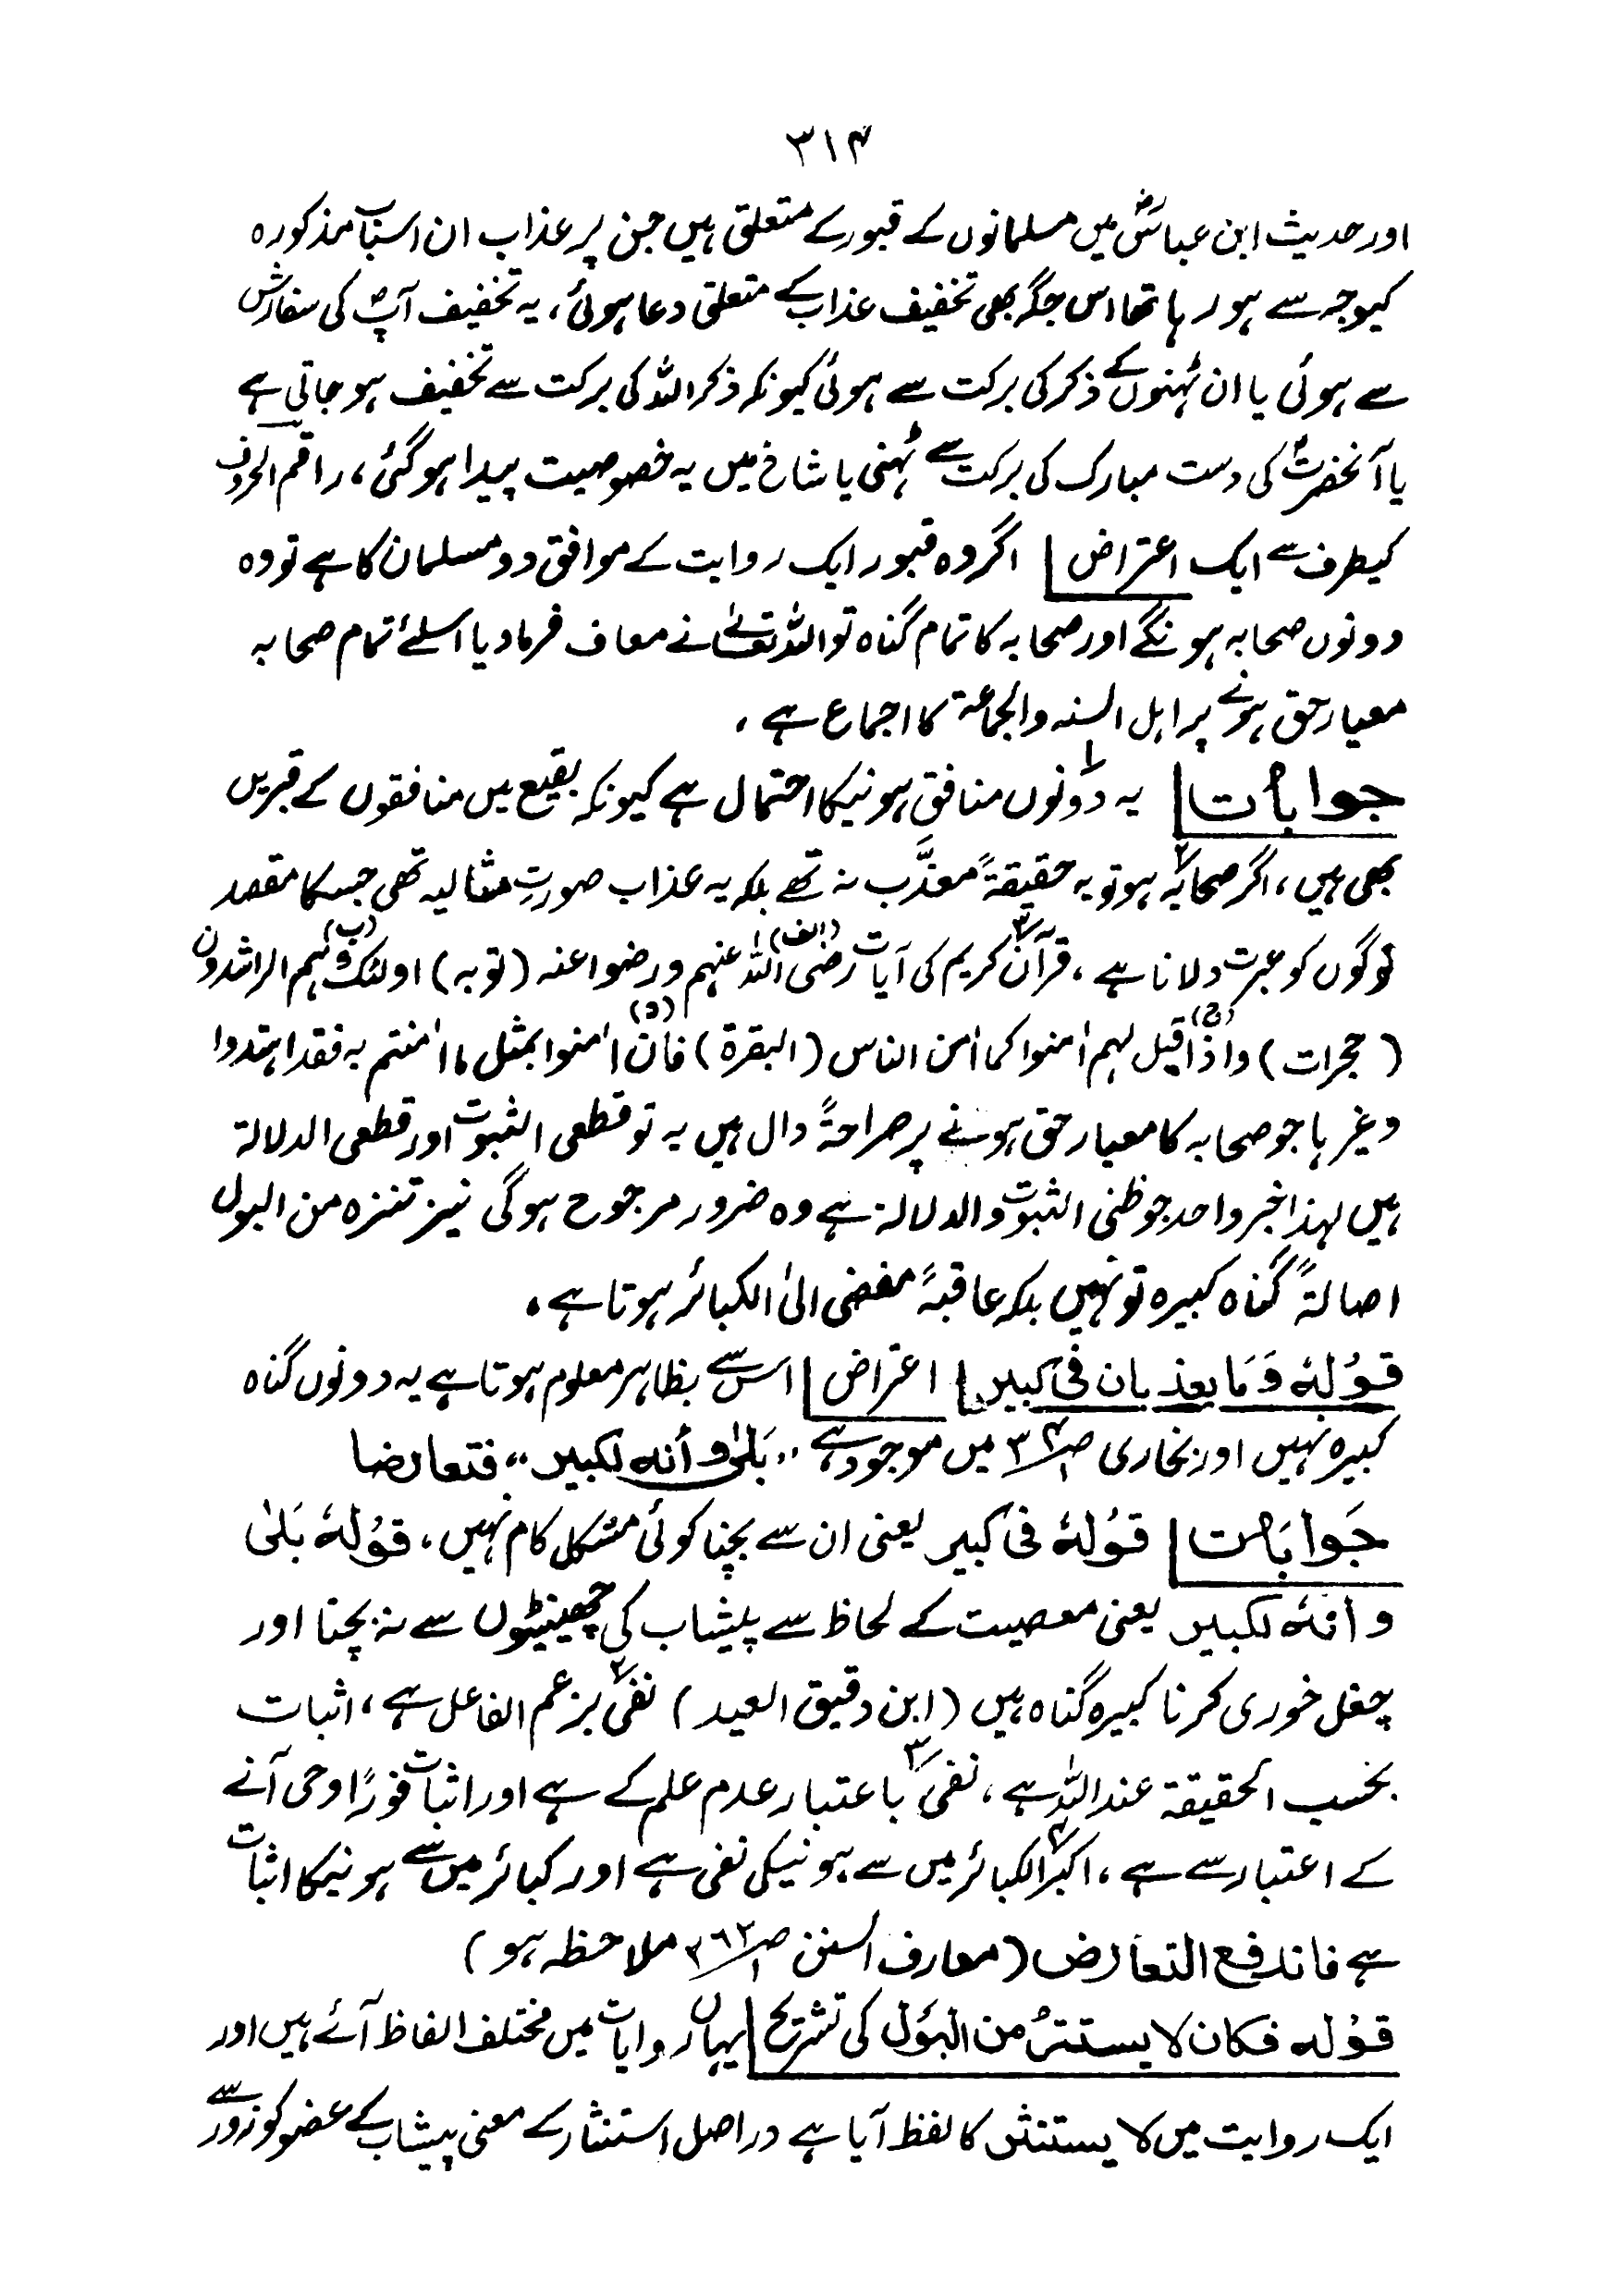 ۳۱۴
اور حدیث ابن عباسؓ میں مسلمانوں کے قبور کے متعلق ہیں جن پر عذاب ان اسباب مذکورہ
کیوجہ سے ہو رہا تھا اس جگہ بھی تخفیف عذاب کے متعلق دعا ہوئی، یہ تخفیف آپؐ کی سفارش
سے ہوئی یا ان ٹہنوں کے ذکر کی برکت سے ہوئی کیونکہ ذکر اللہ کی برکت سے تخفیف ہو جاتی ہے
یا آنحضرتؐ کی دست مبارک کی برکت سے ٹہنی یا شاخ میں یہ خصوصیت پیدا ہو گئی، راقم الحروف
کیطرف سے ایک اعتراض | اگر وہ قبور ایک روایت کے موافق دو مسلمان کا ہے تو وہ
دونوں صحابہ ہونگے اور صحابہ کا تمام گناہ تو اللہ تعالےٰ نے معاف فرما دیا اسلئے تمام صحابہ
معیار حق ہونے پر اہل السنہ والجماعۃ کا اجماع ہے ،
جوابات | ۱؎ یہ دونوں منافق ہونیکا احتمال ہے کیونکہ بقیع میں منافقوں کے قبریں
بھی ہیں، ۲؎ اگر صحابہ ہو تو یہ حقیقۃً معذَّب نہ تھے بلکہ یہ عذاب صورتِ مثالیہ تھی جسکا مقصد
لوگوں کو عبرت دلانا ہے ، ۳؎ قرآن کریم کی آیات (الف) رضی اللہ عنہم ورضوا عنہ (توبہ) (ب) اولئک ہم الراشدون
(حجرات) (ج) واذا قیل لہم اٰمنوا کما اٰمن الناس (البقرۃ) (د) فان اٰمنوا بمثل ما اٰمنتم بہ فقد اہتدوا
وغیرہا جو صحابہ کا معیار حق ہونے پر صراحۃً دال ہیں یہ تو قطعی الثبوت اور قطعی الدلالۃ
ہیں لہذا خبر واحد جو ظنی الثبوت والدلالۃ ہے وہ ضرور مرجوح ہوگی نیز تنزہ من البول
اصالۃً گناہ کبیرہ تو نہیں بلکہ عاقبۃً مفضی الیٰ الکبائر ہوتا ہے ۔
قولہٗ وَمَا یعذبان فی کبیر | اعتراض | اس سے بظاہر معلوم ہوتا ہے یہ دونوں گناہ
کبیرہ نہیں اور بخاری ص۳۴/۱ میں موجود ہے ،، بَلیٰ وأنہ لکبیر ،، فتعارضا
جَوابَات | قولہٗ فی کبیر یعنی ان سے بچنا کوئی مشکل کام نہیں، قولہٗ بَلیٰ
وأنہٗ لکبیر یعنی معصیت کے لحاظ سے پیشاب کی چھینیٹوں سے نہ بچنا اور
چغل خوری کرنا کبیرہ گناہ ہیں (ابن دقیق العید) ۲؎ نفی بزعم الفاعل ہے، اثبات
بحسب الحقیقۃ عند اللہ ہے ، ۳؎ نفی باعتبار عدم علم کے ہے اور اثبات فوراً وحی آنے
کے اعتبار سے ہے ، ۴؎ اکبر الکبائر میں سے ہونیکی نفی ہے اور کبائر میں سے ہونیکا اثبات
ہے فاندفع التعارض (معارف السنن ص۲۶۲/۱ ملاحظہ ہو)
قولہ فکان لا یستترُ من البَوْل کی تشریح | یہاں روایات میں مختلف الفاظ آئے ہیں اور
ایک روایت میں لا یستنثر کا لفظ آیا ہے دراصل استنثار کے معنی پیشاب کے عضو کو زور سے